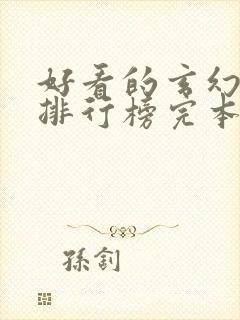 好看的玄幻
排行榜完本
孫釗